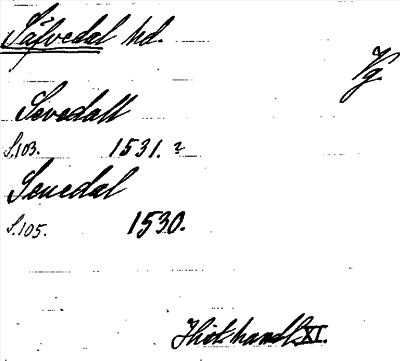 Sävedal hd.
Vg
Sevedall
S.103. 1531. 2
Seuedal
S.105. 1530.
Hist. handl. XI.